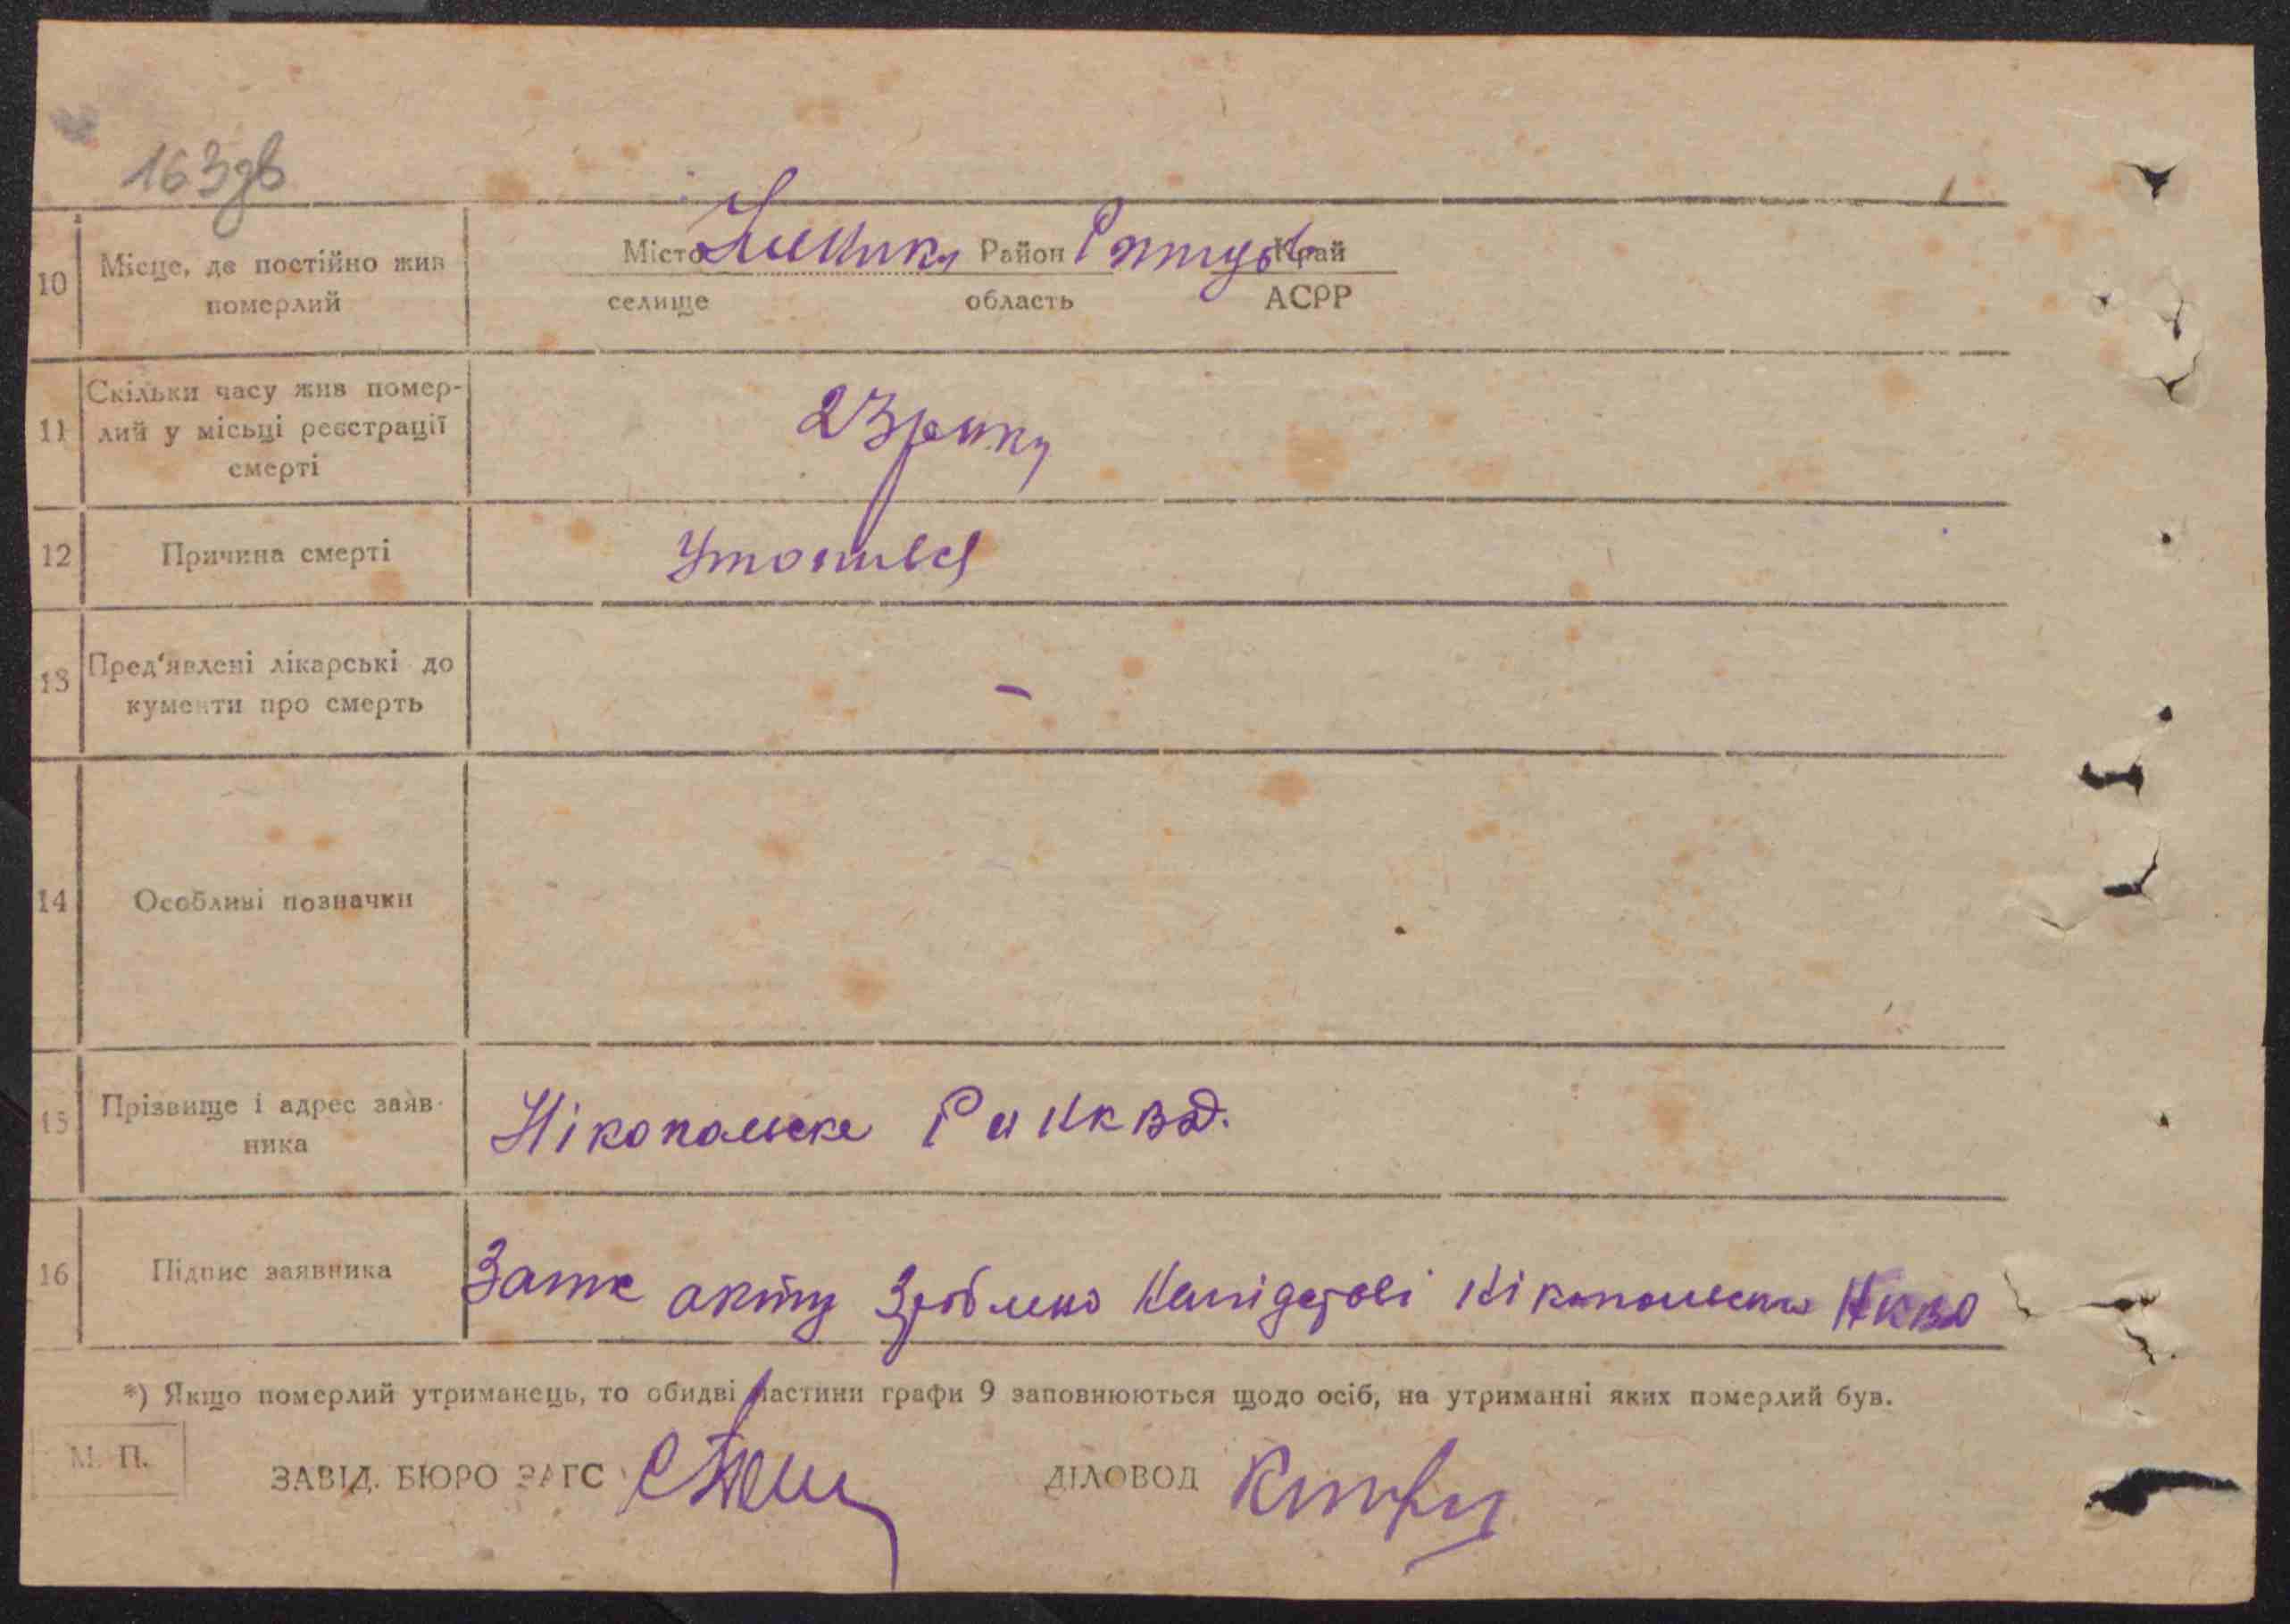 163зв
10 Місце, де постійно жив померлий
Місто Район Край
селище область АСРР
11 Скільки часу жив помер-
лий у місьці реєстрації
смерті
23 року
12 Причина смерті Утопився
13 Пред'явлені лікарські до
кументи про смерть -
14 Особливі позначки
15 Прізвище і адрес заяв-
ника
Нікопольске НКВД.
16 Підпис заявника
акту зроблено НКВД
*) Якщо померлий утриманець, то обидві частини графи 9 заповнюються щодо осіб, на утриманні яких померлий був.
М. П.
ЗАВІД. БЮРО ЗАГС ДІЛОВОД